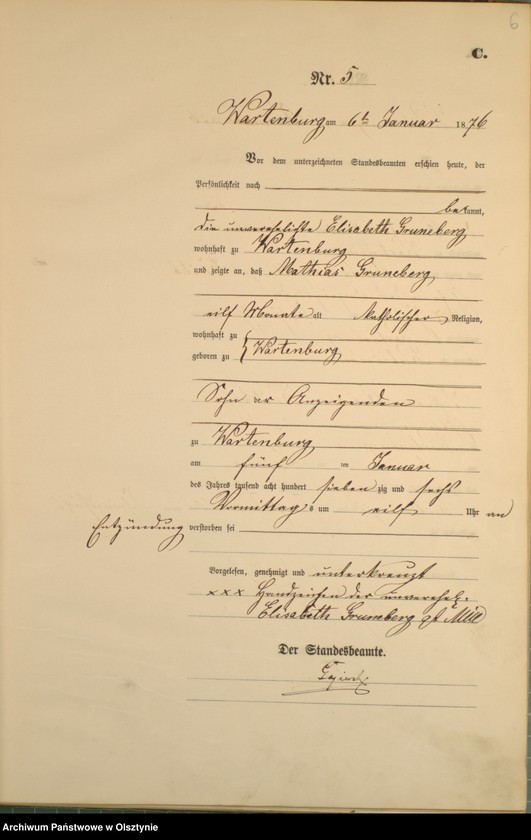 6
C.
Nr. 5
Wartenburg am 6t Januar 1876
Vor dem unterzeichneten Standesbeamten erschien heute, der
Persönlichkeit nach
bekannt,
die unverehelichte Elisabeth Gruneberg
wohnhaft zu Wartenburg
und zeigte an, daß Mathias Gruneberg
eilf Monate alt katholischer Religion,
wohnhaft zu
geboren zu Wartenburg
Sohn der Anzeigenden
zu Wartenburg
am fünf ten Januar
des Jahres tausend acht hundert sieben zig und sechs
Vormittags um eilf Uhr an
Entzündung verstorben sei
Vorgelesen, genehmigt und unterkreuzt
xxx Handzeichen der unverehel.
Elisabeth Gruneberg
Der Standesbeamte.
Archiwum Państwowe w Olsztynie